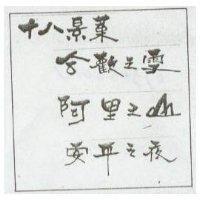 十八景菓
合歡之雪
阿里之山
安平之夜